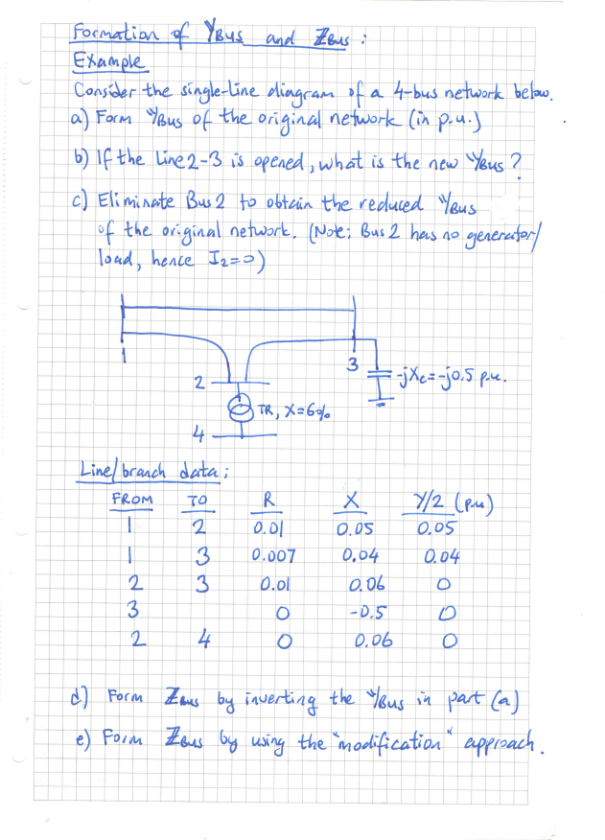 Formation of YBUS and ZBUS :
Example
Consider the single-line diagram of a 4-bus network below.
a) Form YBUS of the original network (in p.u.)
b) If the line 2-3 is opened, what is the new YBUS ?
c) Eliminate Bus 2 to obtain the reduced YBUS
of the original network. (Note: Bus 2 has no generator/
load, hence I2=0)
1
3
-jXc=-j0.5 p.u.
2
TR, X=6%
4
Line/branch data:
FROM TO R X Y/2 (p.u)
1 2 0.01 0.05 0.05
1 3 0.007 0.04 0.04
2 3 0.01 0.06 0
3 0 -0.5 0
2 4 0 0.06 0
d) Form ZBUS by inverting the YBUS in part (a)
e) Form ZBUS by using the "modification" approach.